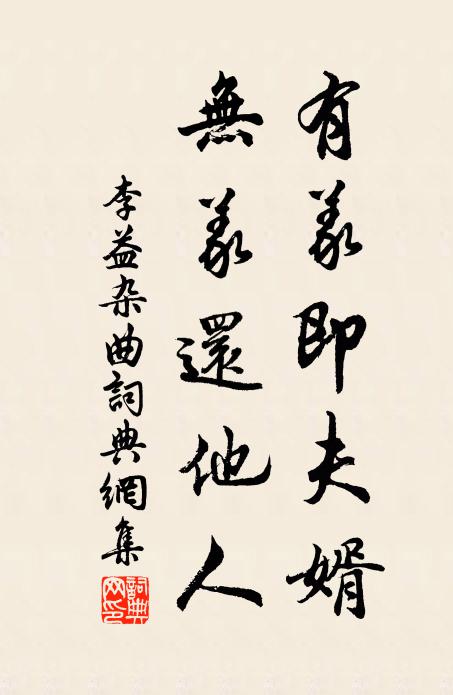 有義即夫婿
無義還他人
李益杂曲詞典網集
詞典网印